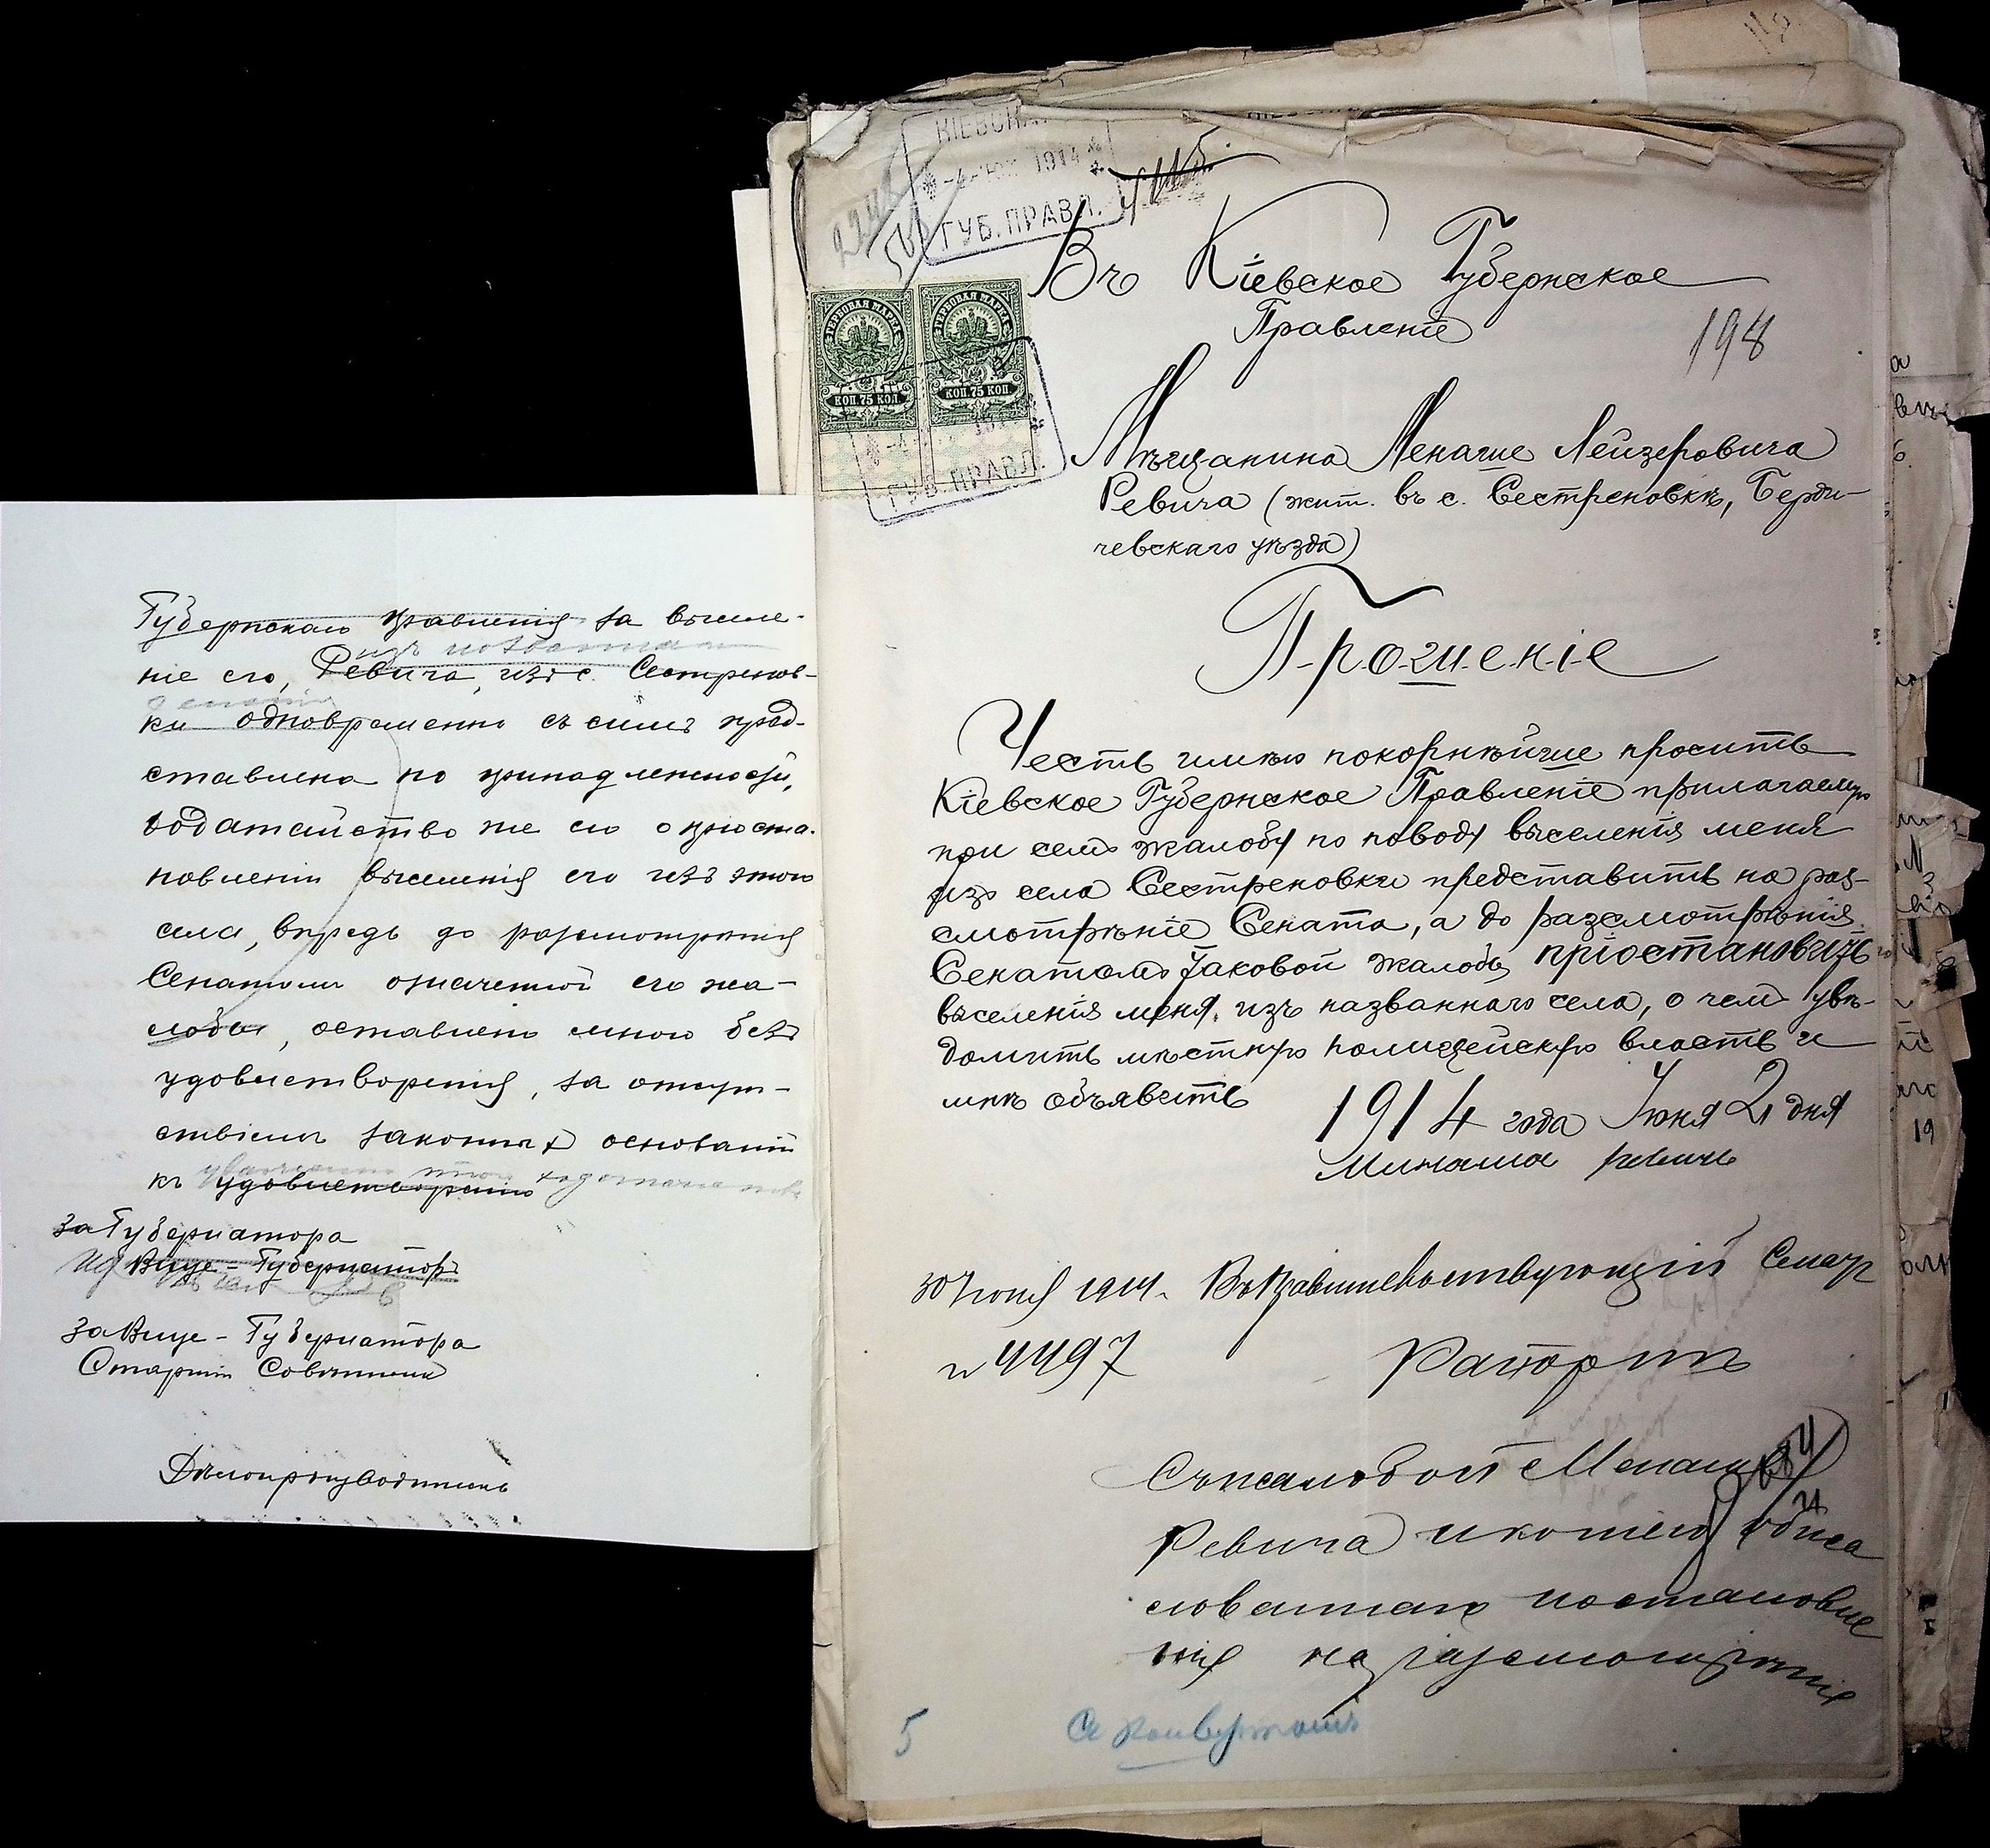 Губернскаго правленія за выселе-
ніе его, Ревича, изъ с. Сестренов-
ки одновременно съ симъ пред-
ставлена по принадлежности,
ходатайство же его о пріоста-
новленіи выселенія его изъ этого
села, впредь до разсмотрѣнія
Сенатомъ означенной его жа-
лобы, оставлено мною безъ
удовлетворенія, за отсут-
ствіемъ законныхъ основаній
къ удовлетворенію
За Губернатора
Вице-Губернаторъ
За Вице-Губернатора
Старшій Совѣтникъ
Дѣлопроизводитель
КІЕВСК
1914
ГУБ. ПРАВЛ.
Въ Кіевское Губернское
Правленіе
198
ГЕРБОВАЯ МАРКА ГЕРБОВАЯ МАРКА
КОП. 75 КОП. КОП. 75 КОП.
ГУБ. ПРАВЛ.
Мѣщанина Менаше Лейзеровича
Ревича (жит. въ с. Сестреновкѣ, Берди-
чевскаго уѣзда)
Прошеніе
Честь имѣю покорнѣйше просить
Кіевское Губернское Правленіе прилагаемую
при семъ жалобу по поводу выселенія меня
изъ села Сестреновки представить на раз-
смотрѣніе Сената, а до разсмотрѣнія
Сенатомъ таковой жалобы пріостановить
выселенія меня изъ названнаго села, о чемъ увѣ-
домить мѣстную полицейскую власть и
мнѣ объявить
1914 года Іюня 2 дня
Минаша Ревичъ
30 Іюня 1914. Въ Правительствующій Сенатъ
№ 4497 Рапортъ
Съ жалобой Менаше
Ревича и копіей обжа
лованнаго постановле
нія на разсмотрѣніе
5 Съ конвертомъ